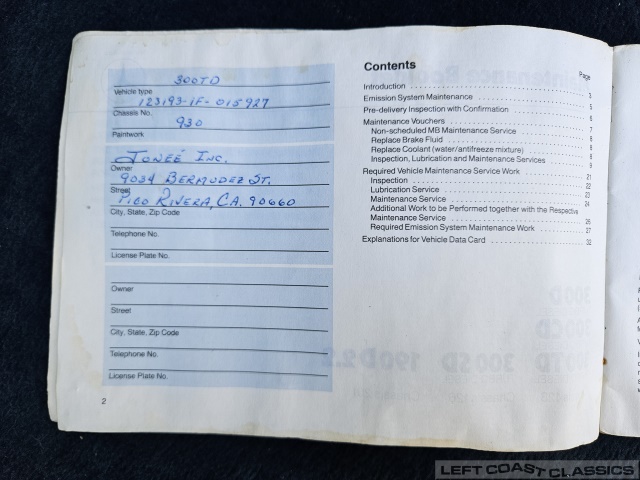 300TD
Vehicle type
123193-1F-015927
Chassis No.
930
Paintwork
Jonee Inc.
Owner
9034 Bermudez St.
Street
Pico Rivera, CA. 90660
City, State, Zip Code
Telephone No.
License Plate No.
Owner
Street
City, State, Zip Code
Telephone No.
License Plate No.
2
Contents
Page
Introduction 3
Emission System Maintenance 5
Pre-delivery Inspection with Confirmation 6
Maintenance Vouchers 7
Non-scheduled MB Maintenance Service 8
Replace Brake Fluid 8
Replace Coolant (water/antifreeze mixture) 8
Inspection, Lubrication and Maintenance Services 9
Required Vehicle Maintenance Service Work 21
Inspection 22
Lubrication Service 23
Maintenance Service 24
Additional Work to be Performed together with the Respective
Maintenance Service 26
Required Emission System Maintenance Work 27
Explanations for Vehicle Data Card 32
LEFT COAST CLASSICS